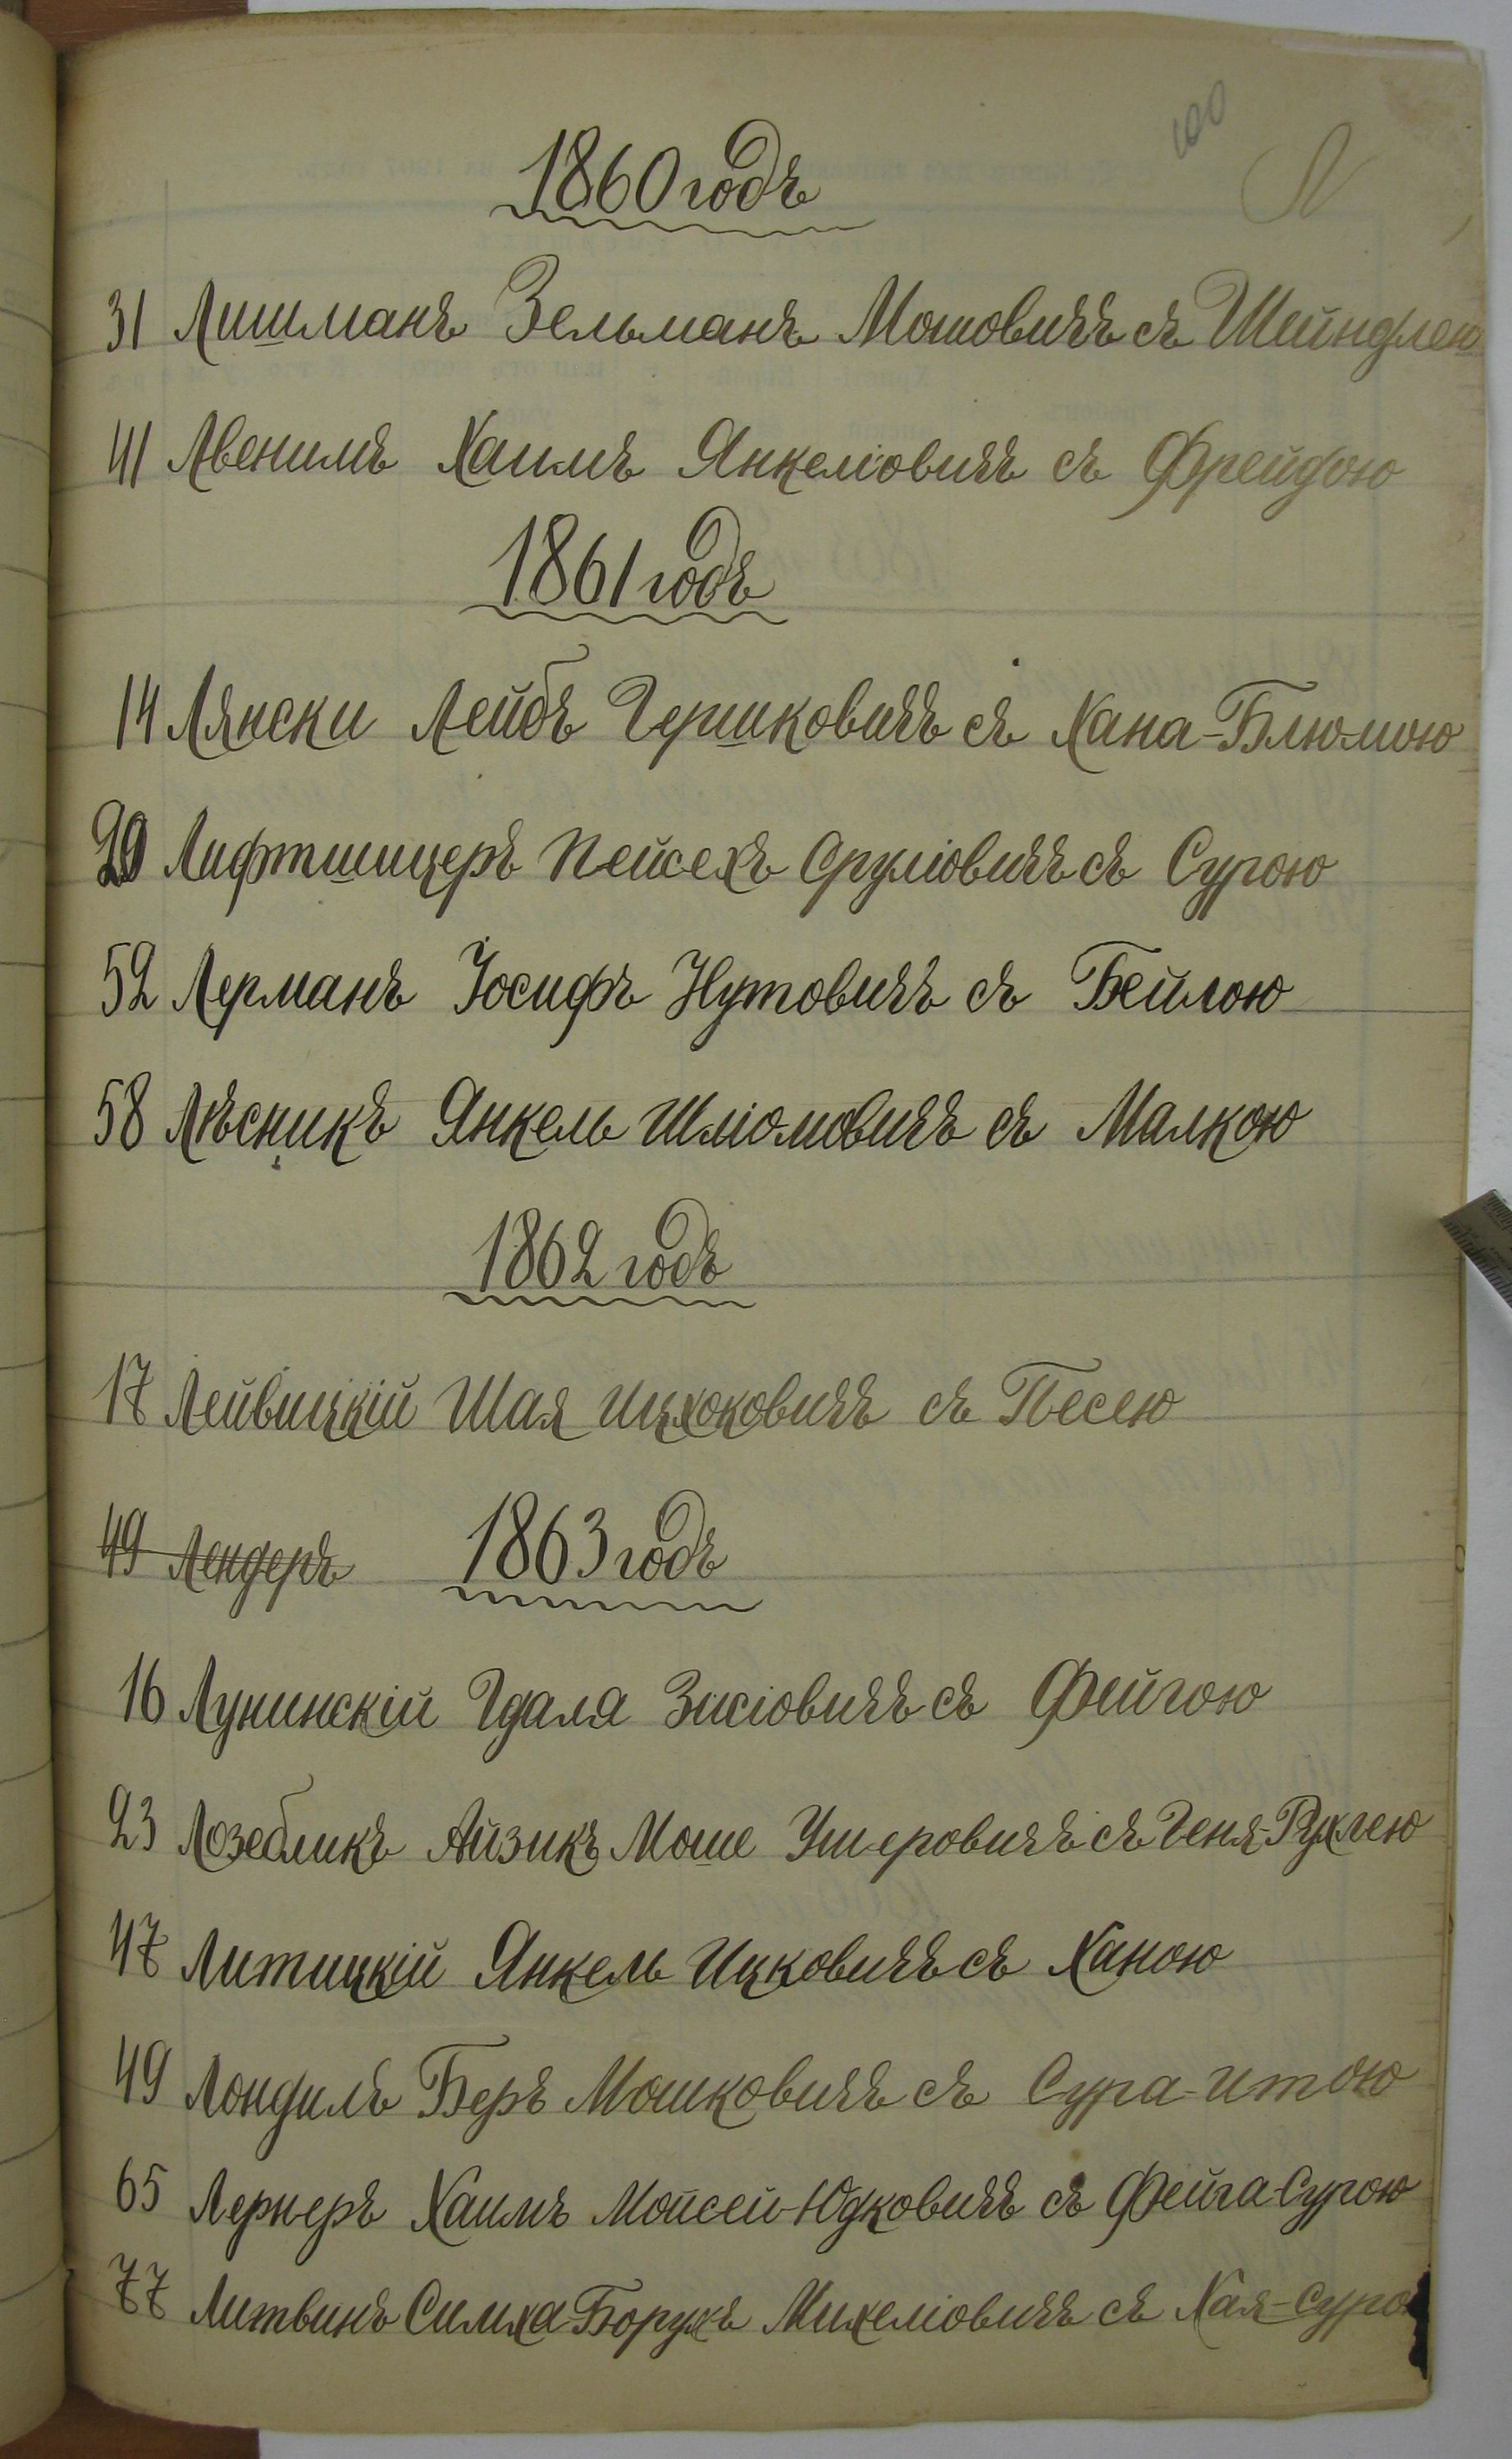 100
Л
1860 годъ
31 Лишманъ Зельманъ Мошовичъ съ Шейндлею
41 Авенимъ Хаимъ Янкеліовичъ съ Фрейдою
1861 годъ
14 Лянски Лейбъ Гершковичъ съ Хана-Блюмою
29 Лифтшицеръ Пейсехъ Сруліовичъ съ Сурою
52 Лерманъ Іосифъ Нутовичъ съ Бейлою
58 Лѣсникъ Янкель Шліомовичъ съ Малкою
1862 годъ
17 Лейвицкій Шая Ицхоковичъ съ Песею
49 Лендеръ 1863 годъ
16 Лунинскій Гдаля Зисіовичъ съ Фейгою
23 Лозебликъ Айзикъ Моше Ушеровичъ съ Геня-Рухлею
47 Литицкій Янкель Ицковичъ съ Ханою
49 Лондилъ Беръ Мошковичъ съ Сура-Итою
65 Лернеръ Хаимъ Мойсей-Юдковичъ съ Фейга-Сурою
77 Литвинъ Симха-Борухъ Михеліовичъ съ Хая-Сурою